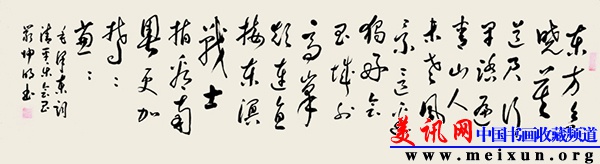 东方欲
晓莫
道君行
早踏遍
青山人
未老风
景这边
独好会
昌城外
高峰
颠连直
接东溟
战士
指看南
粤更加
郁々
葱々
毛泽东词
清平乐会昌
坤明书
美讯网 中国书画收藏频道
www.meixun.org